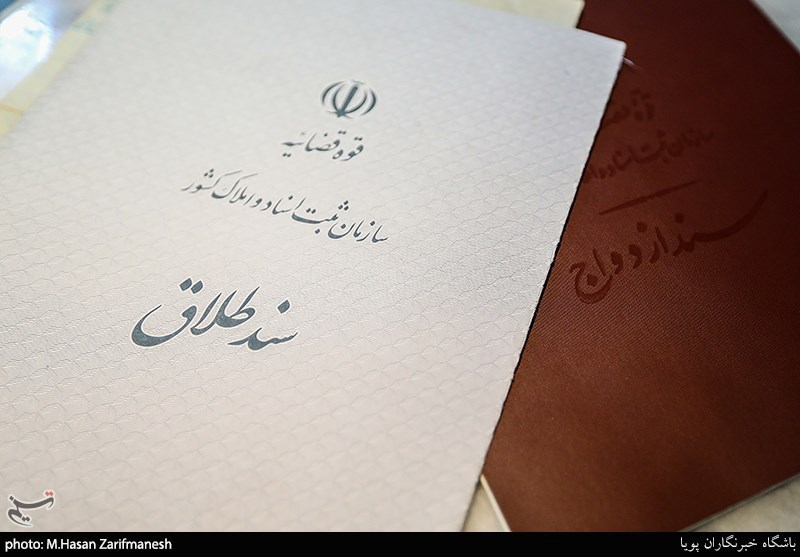 قوه قضائیه
سازمان ثبت اسناد و املاک کشور
سند طلاق
قوه قضا
سازمان ثبت اسناد و ام
سند ازدواج
تسنیم
photo: M.Hasan Zarifmanesh
باشگاه خبرنگاران پویا